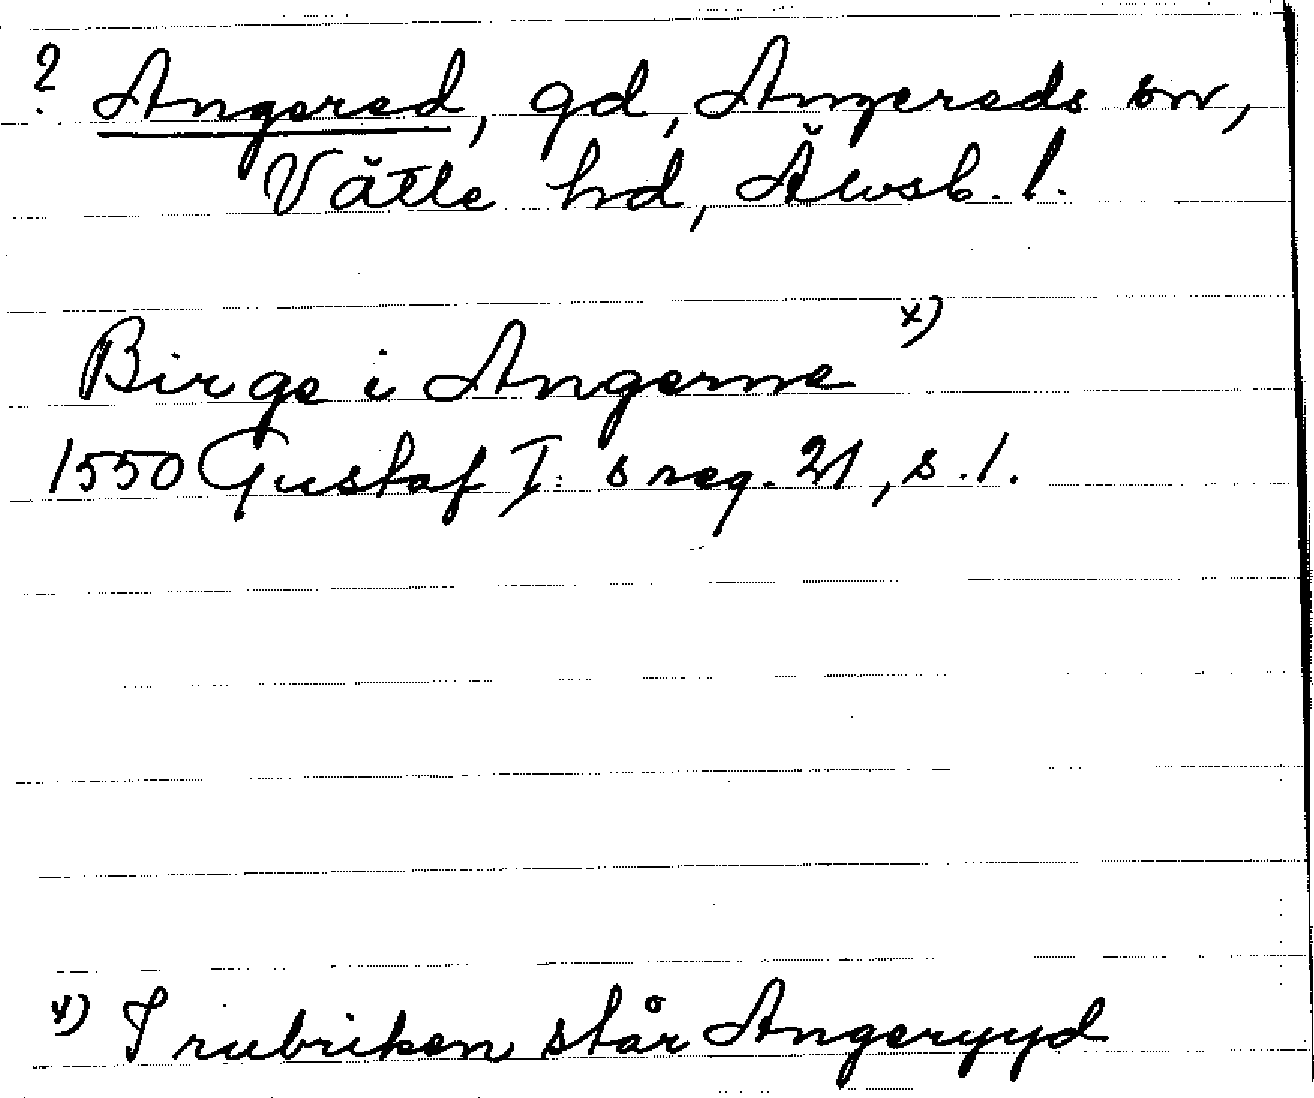 ? Angered, gd, Angereds sn,
Vättle hd, Älvsb. l.
Birge i Angerne x)
1550 Gustaf I:s reg. 21, s. 1.
x) I rubriken står Angeryyd